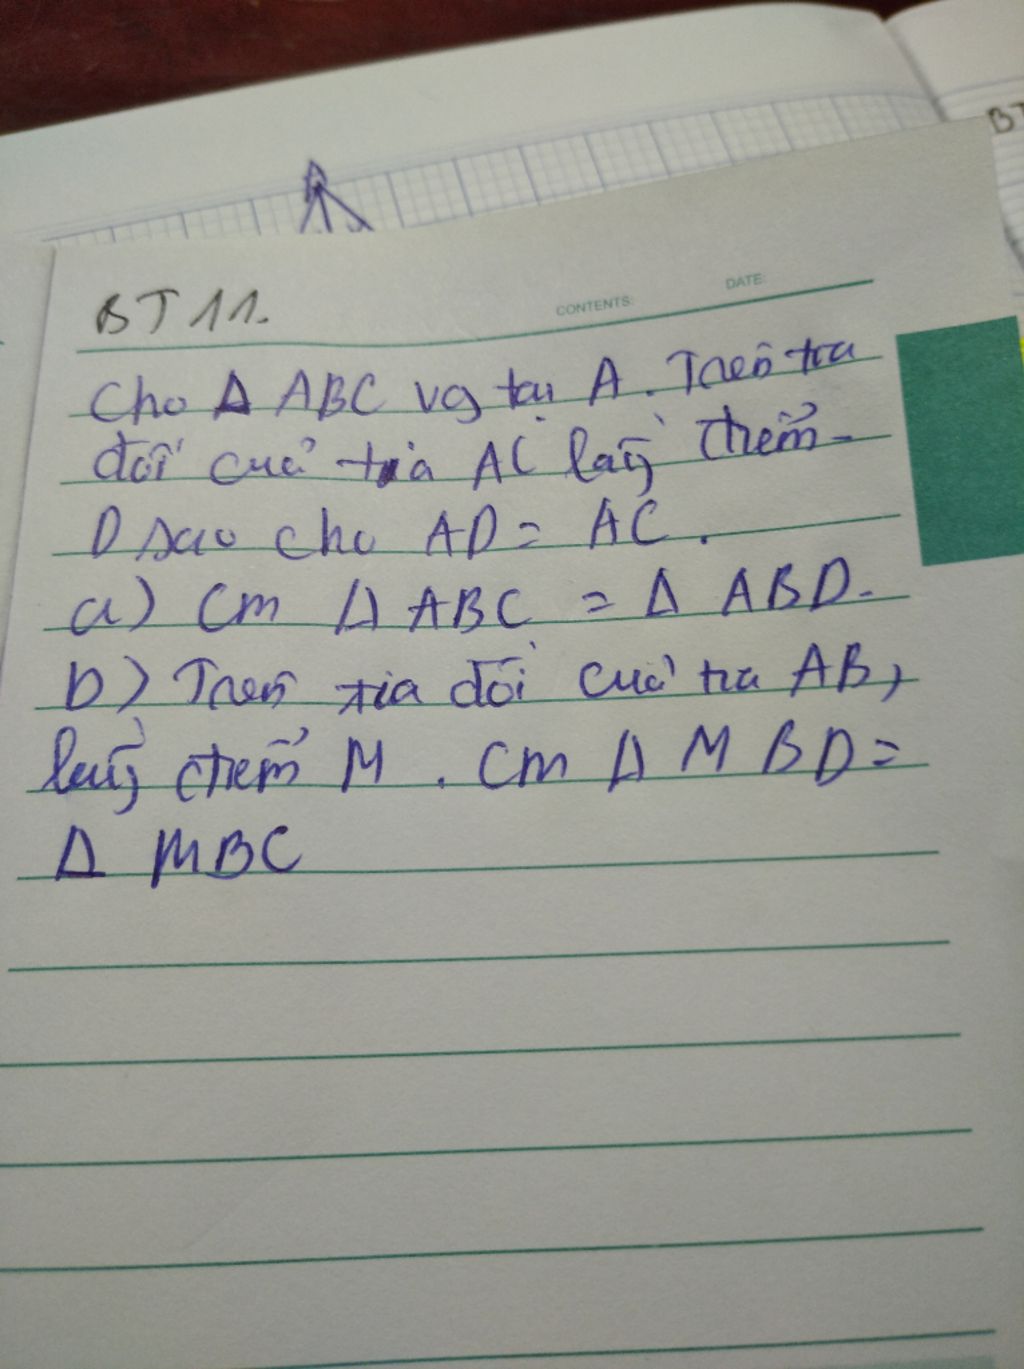 BT
BT 11.
CONTENTS:
DATE:
Cho Δ ABC vg tại A. Trên tia
đối của tia AC lấy điểm
D sao cho AD = AC.
a) Cm Δ ABC = Δ ABD.
b) Trên tia đối của tia AB,
lấy điểm M. Cm Δ MBD =
Δ MBC